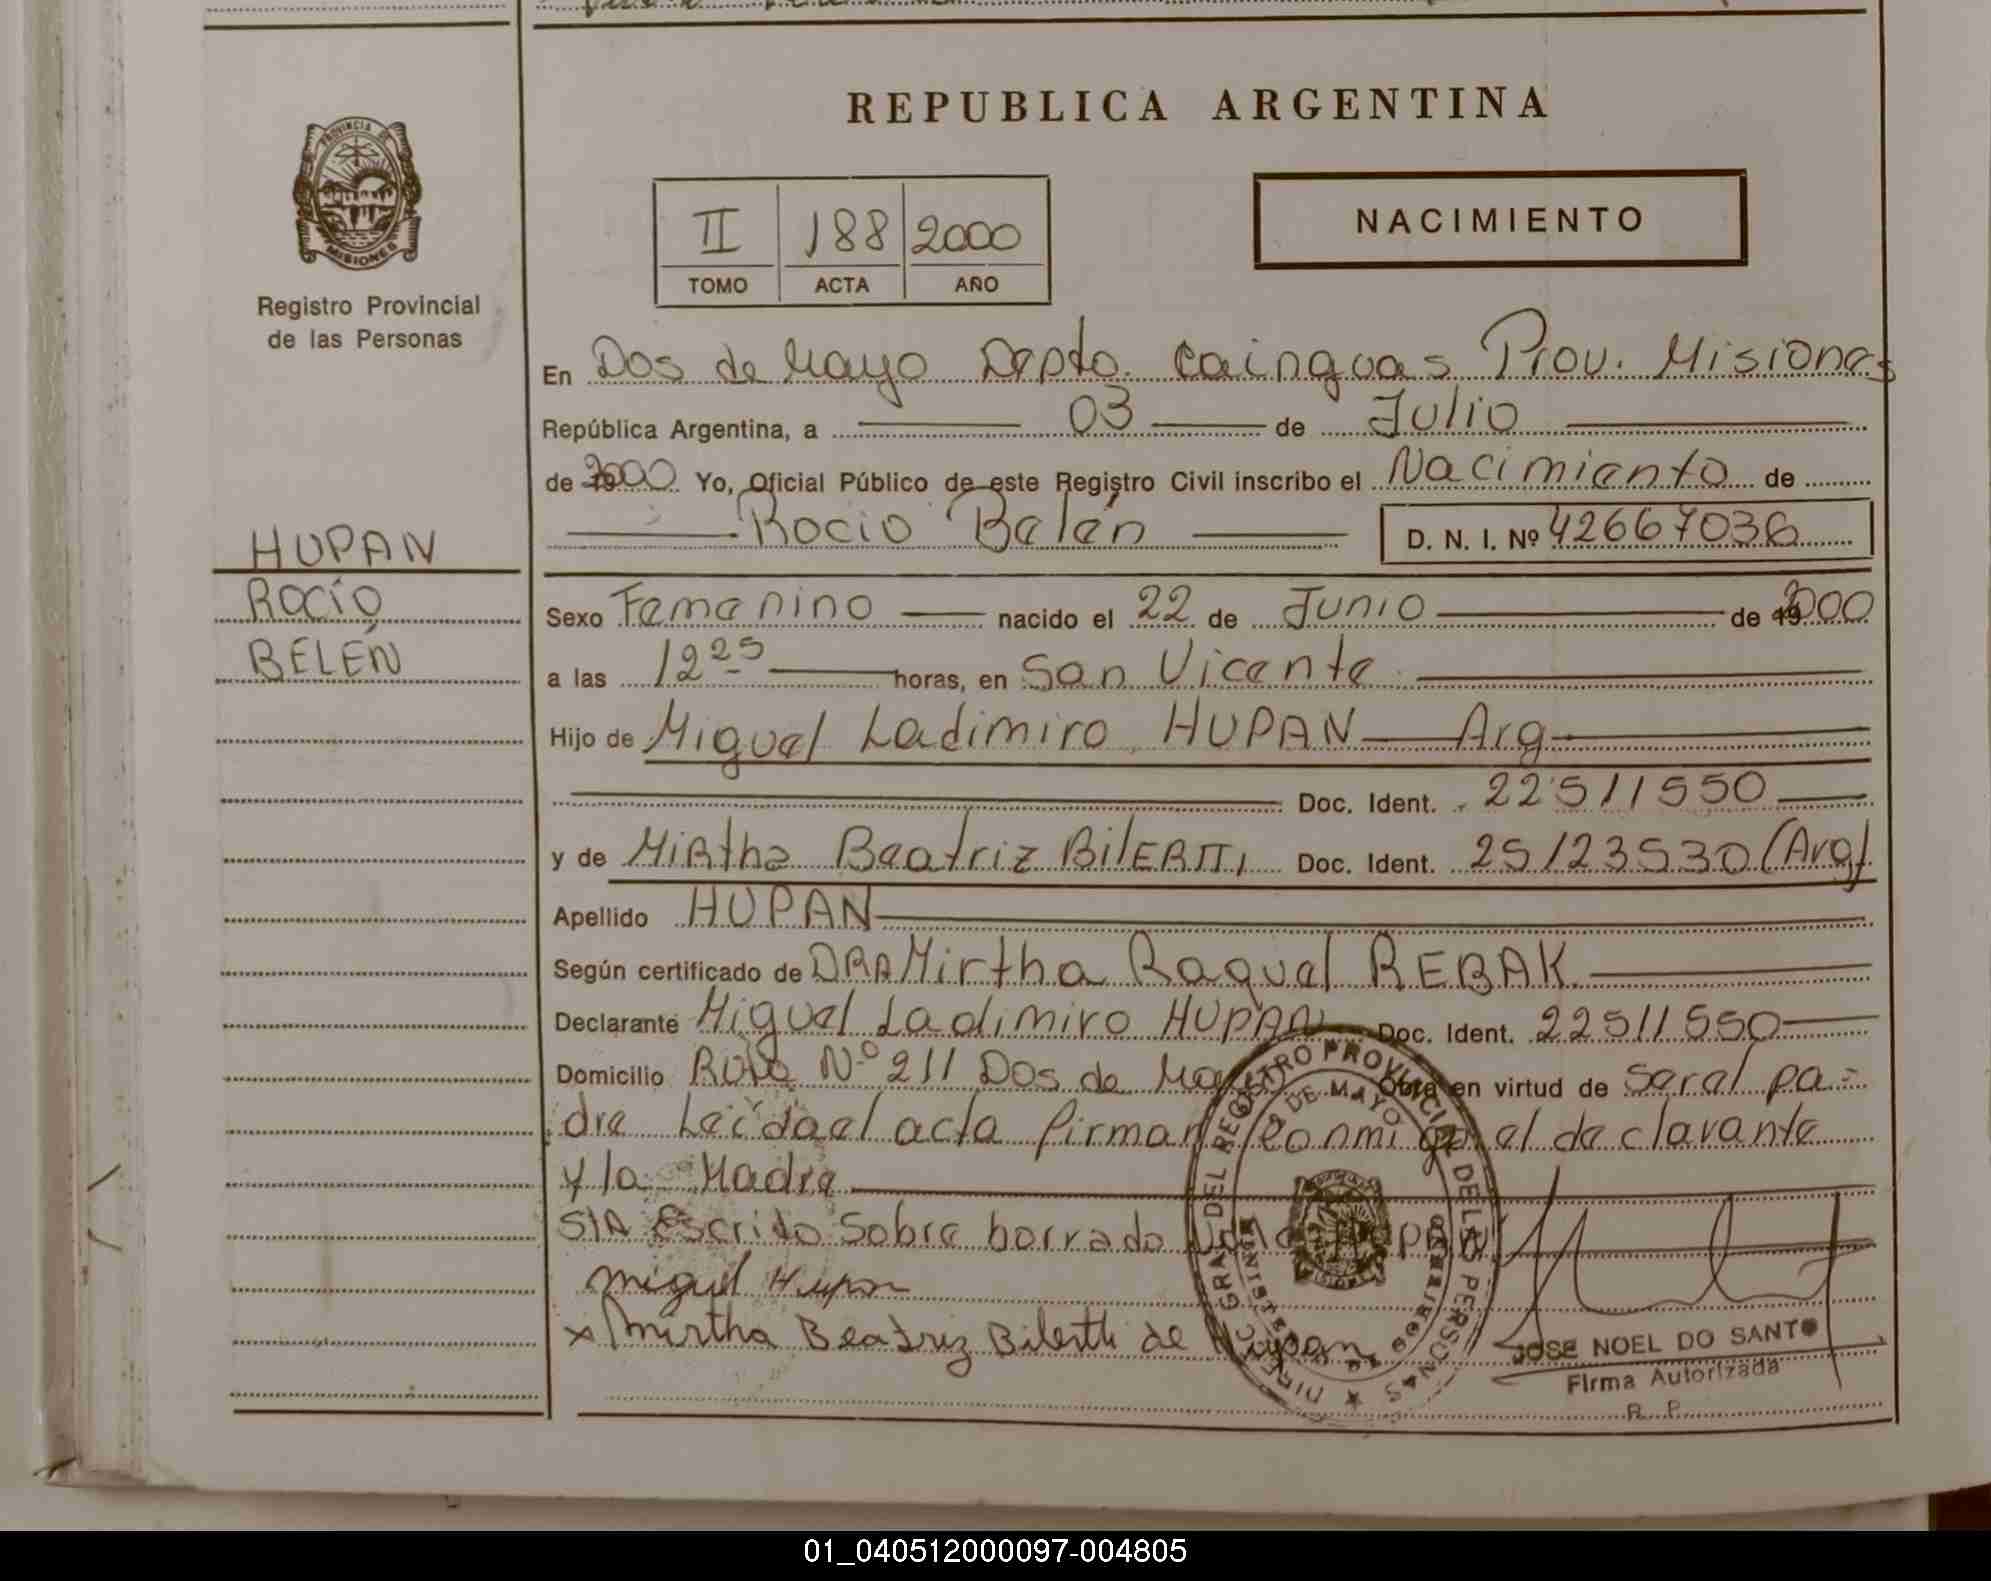 REPUBLICA ARGENTINA
PROVINCIA DE
MISIONES
Registro Provincial
de las Personas
II 188 2000
TOMO ACTA AÑO
NACIMIENTO
HUPAN
ROCÍO
BELÉN
En Dos de Mayo Depto. Cainguas Prov. Misiones
República Argentina, a 03 de Julio
de 2000 Yo, Oficial Público de este Registro Civil inscribo el Nacimiento de
Rocio Belén D. N. I. Nº 42667036
Sexo Femenino nacido el 22 de Junio de 2000
a las 12 25 horas, en San Vicente
Hijo de Miguel Ladimiro HUPAN Arg
Doc. Ident. 22511550
y de Mirtha Beatriz BilERTTi Doc. Ident. 25123530 (Arg)
Apellido HUPAN
Según certificado de DRA Mirtha Raquel REBAK
Declarante Miguel Ladimiro HUPAN Doc. Ident. 22511550
Domicilio Ruta Nº 211 Dos de Mayo Obra en virtud de ser el pa-
dre Leida el acta firman conmigo el declarante
y la Madre
S/R Escrito Sobre borrado Vale HUPAN
Miguel Hupan
x Mirtha Beatriz Bilertti de Hupan
DEL REGISTRO PROVINCIAL DE LAS PERSONAS
DOS DE MAYO
MISIONES
JOSE NOEL DO SANTO
Firma Autorizada
R. P.
01_040512000097-004805